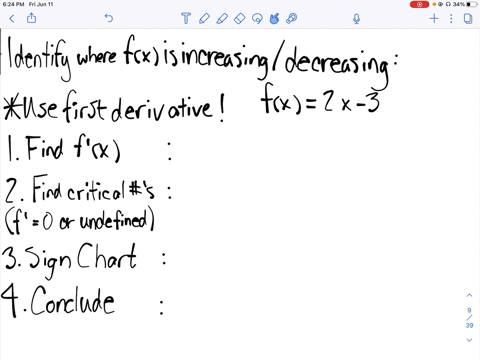 6:24 PM Fri Jun 11
34%
Identify where f(x) is increasing/decreasing:
*Use first derivative! f(x) = 2x-3
1. Find f'(x) :
2. Find critical #'s :
(f' = 0 or undefined)
3. Sign Chart :
4. Conclude :
9
/
39